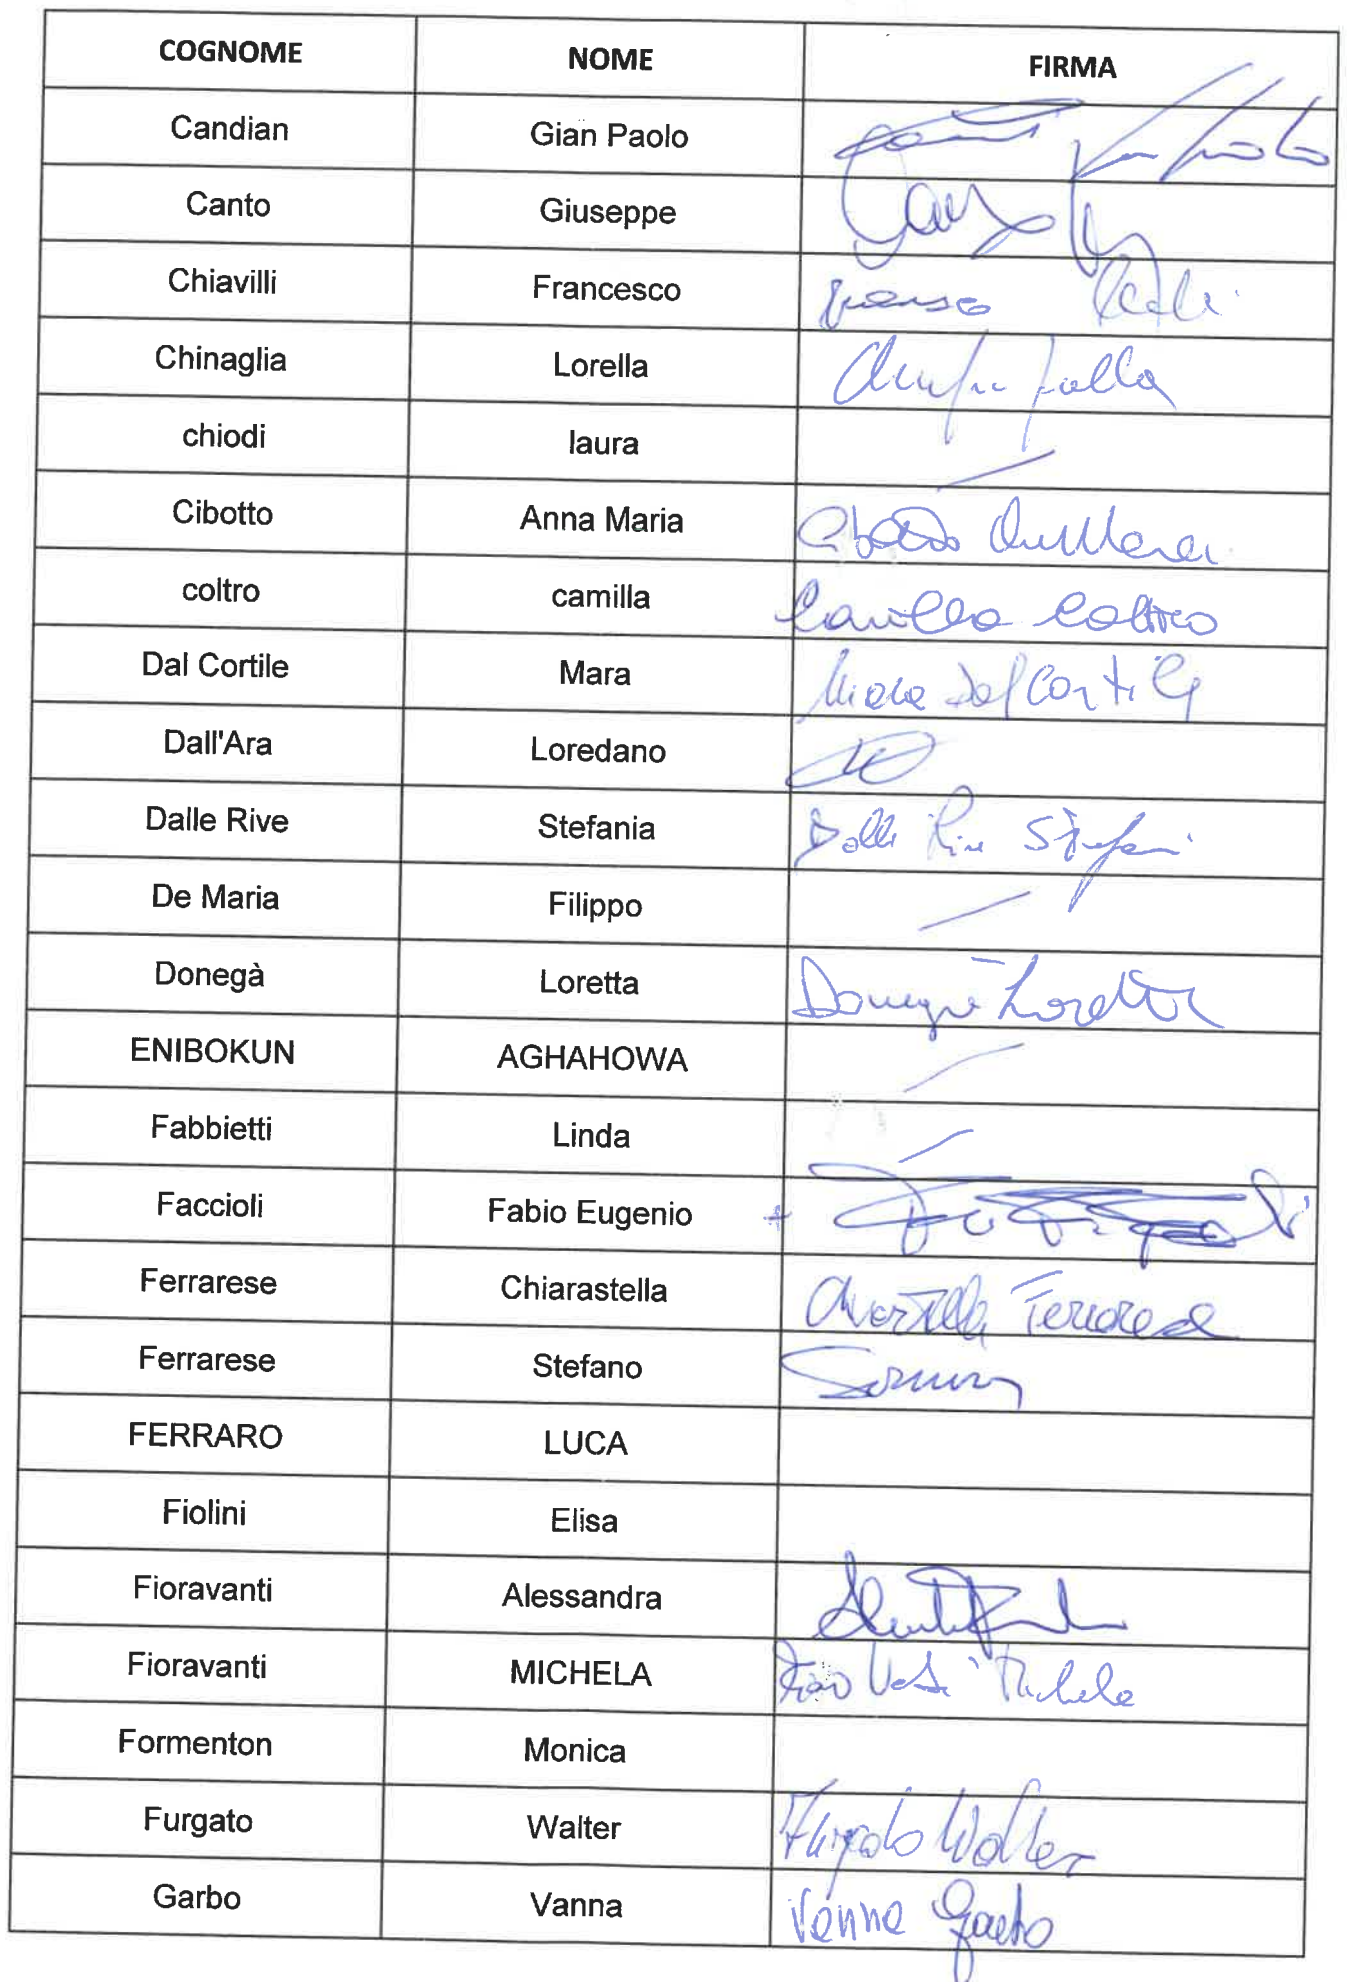 COGNOME NOME FIRMA
Candian Gian Paolo
Canto Giuseppe
Chiavilli Francesco
Chinaglia Lorella
chiodi laura
Cibotto Anna Maria
coltro camilla Camilla Coltro
Dal Cortile Mara Mara Dal Cortile
Dall'Ara Loredano
Dalle Rive Stefania
De Maria Filippo
Donegà Loretta Donegà Loretta
ENIBOKUN AGHAHOWA
Fabbietti Linda
Faccioli Fabio Eugenio
Ferrarese Chiarastella Chiarastella Ferrarese
Ferrarese Stefano
FERRARO LUCA
Fiolini Elisa
Fioravanti Alessandra
Fioravanti MICHELA Michela
Formenton Monica
Furgato Walter Furgato Walter
Garbo Vanna Vanna Garbo